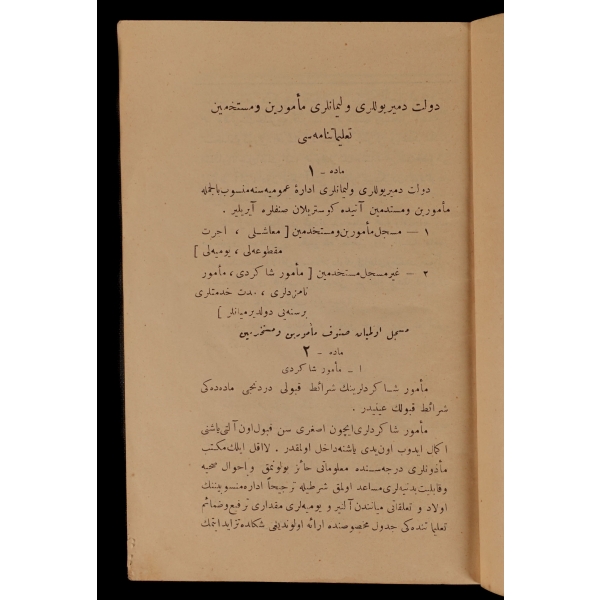 دولت دمیریوللری و لیمانلری مأمورین و مستخدمین
تعلیماتنامه‌سی
ماده - ١
دولت دمیریوللری ولیمانلری ادارهٔ عمومیه‌سنه منسوب بالجمله
مأمورین ومستخدمین آتیده کوستریلان صنفلره آیریلیر .
١ — مسجل مأمورین ومستخدمین [ معاشلی ، اجرت
مقطوعه‌لی ، یومیه‌لی ]
٢ — غیرمسجل مستخدمین [ مأمور شاکردی ، مأمور
نامزدلری ، مدت خدمتلری
برسنه‌یی دولدیرمیانلر ]
مسجل اولمیان صنوف مأمورین ومستخدمین
ماده - ٢
١ - مأمور شاکردی
مأمور شاکردلرینك شرائط قبولی دردنجی ماده‌ده‌کی
شرائط قبولك عینیدر .
مأمور شاکردلری ایچون اصغری سن قبول اون آلتی یاشنی
اکمال ایدوب اون یدی یاشنه داخل اولمقدر . لااقل ایلك مکتب
مأذونلری درجه‌سنده معلوماتی حائز بولونمق واحوال صحیه
وقابلیت بدنیه‌لری مساعد اولمق شرطیله ترجیحاً اداره منسوبیننك
اولاد و تعلقاتی میانندن آلنیر و یومیه‌لری مقداری ترفیع وضمائم
تعلیماتنده‌کی جدول مخصوصنده ارائه اولوندیغی شکلده تزاید ایتمك